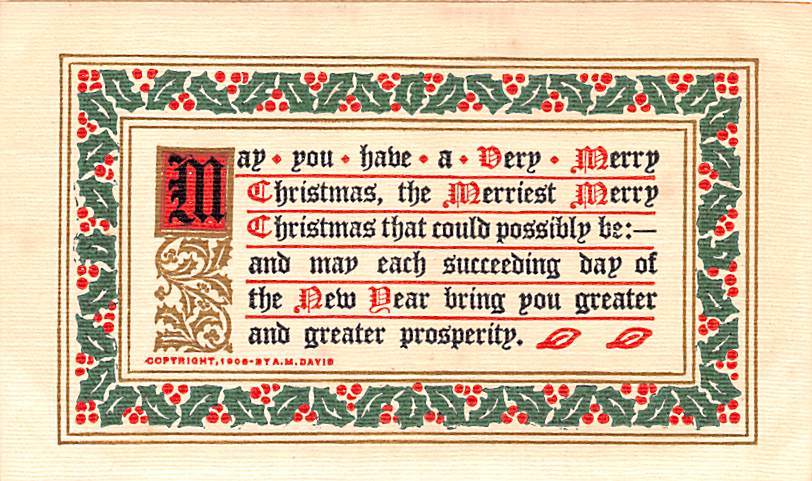 May • you • have • a • Very • Merry
Christmas, the Merriest Merry
Christmas that could possibly be:—
and may each succeeding day of
the New Year bring you greater
and greater prosperity.
COPYRIGHT, 1906-BY A.M. DAVIS